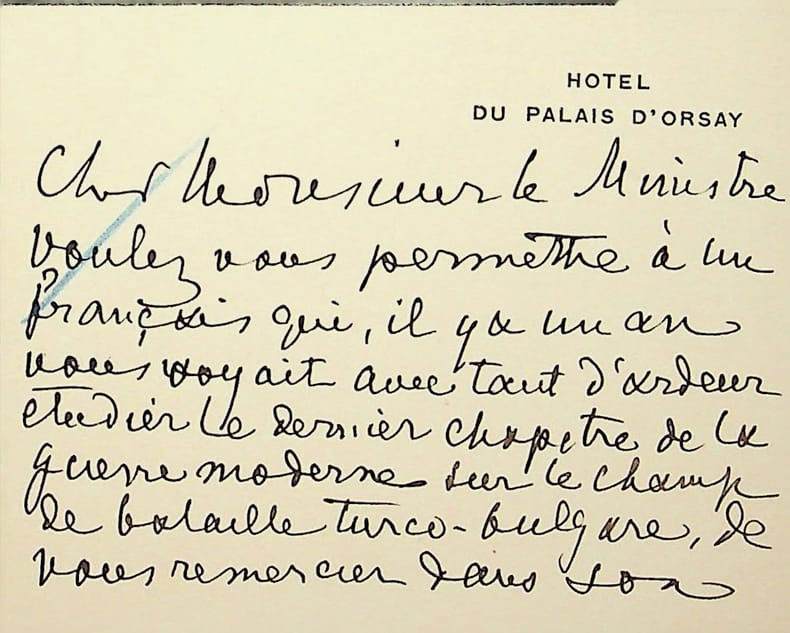 HOTEL
DU PALAIS D'ORSAY
Cher Monsieur le Ministre
Voulez vous permettre à un
français qui, il y a un an
vous voyait avec tant d'ardeur
étudier le dernier chapitre de la
guerre moderne sur le champ
de bataille turco-bulgare, de
vous remercier dans son